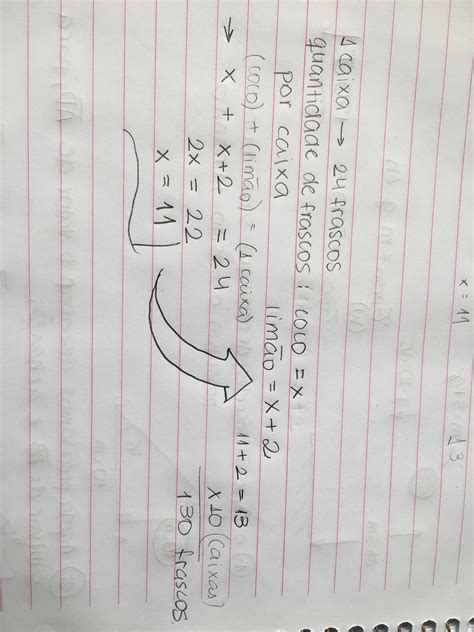 x = 11
1 caixa → 24 frascos
quantidade de frascos : coco = x
por caixa
limão = x + 2
(coco) + (limão) = (1 caixa)
11 + 2 = 13
→ x + x+2 = 24
x10 (caixas)
2x = 22
130 frascos.
x = 11